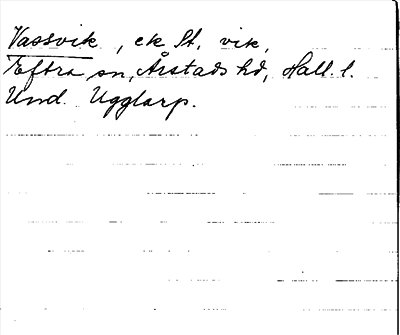 Vassvik, ek St. vik,
Eftra sn, Årstads hd, Hall. l.
Und. Ugglarp.